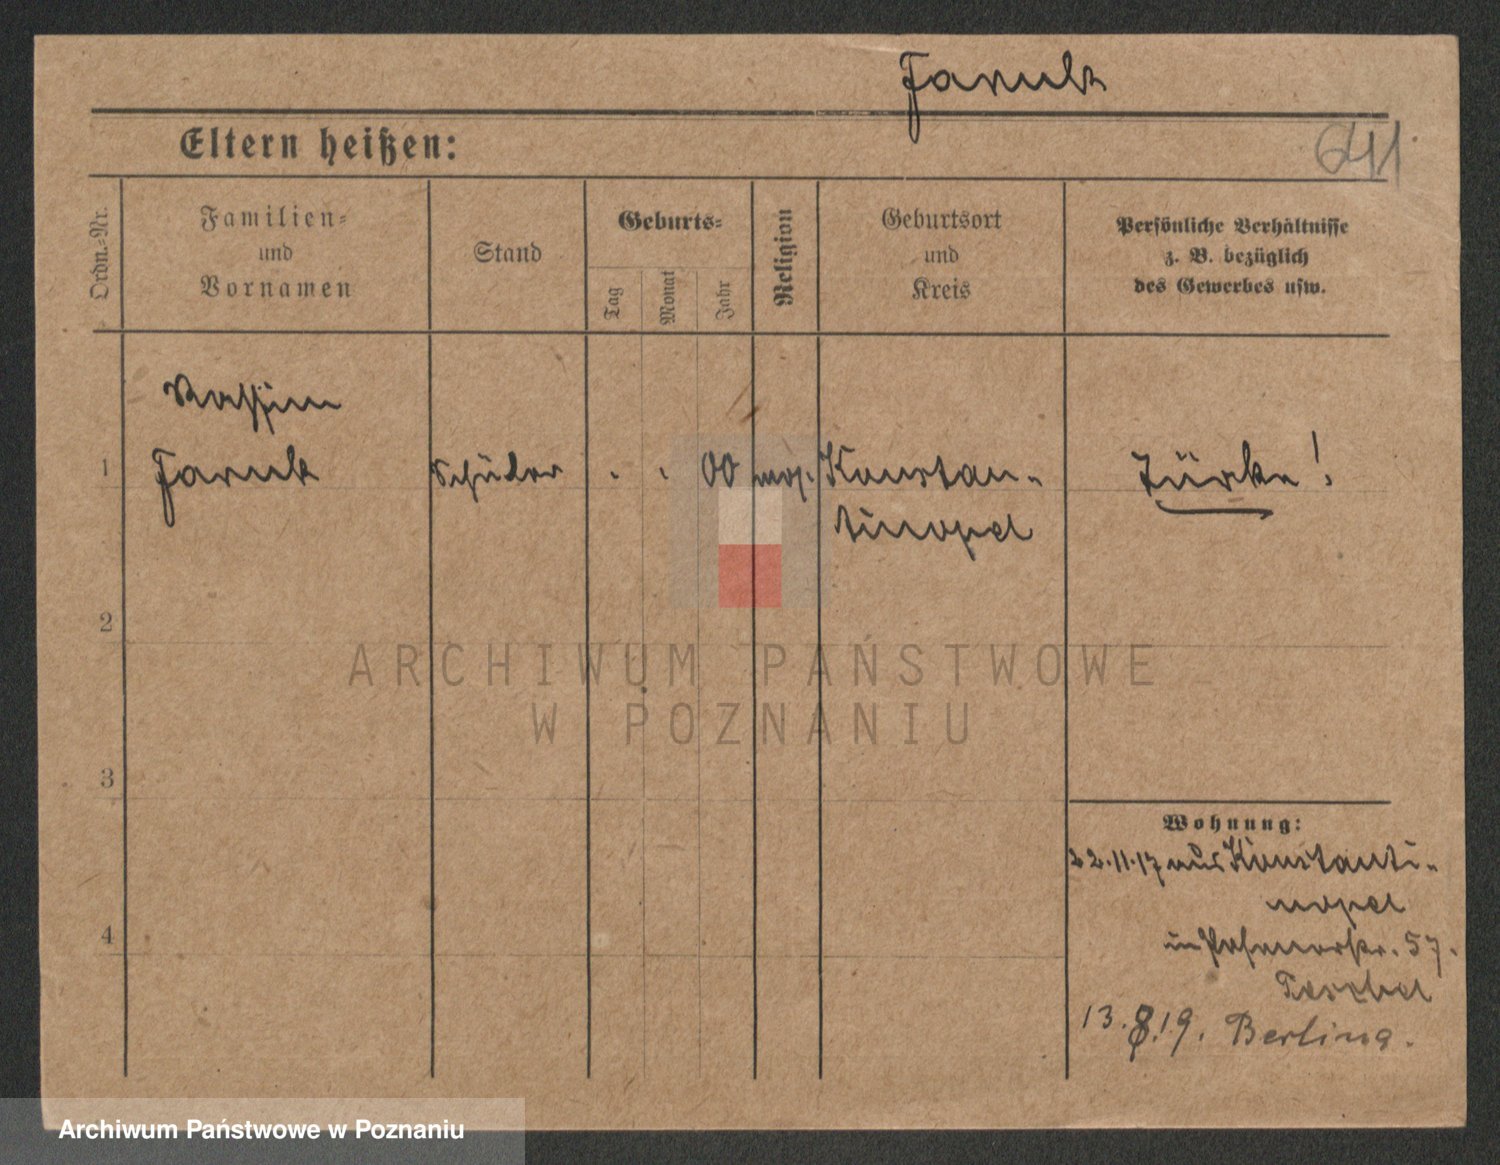 Faruk
Eltern heißen:
641
Ordn.=Nr.
Familien=
und
Vornamen
Stand
Geburts=
Tag
Monat
Jahr
Religion
Geburtsort
und
Kreis
Persönliche Verhältnisse
z. B. bezüglich
des Gewerbes usw.
1
Faruk
Schüler
00
mos.
Konstan-
tinopel
Türke!
2
3
4
Wohnung:
22.11.17 aus Konstanti-
nopel
in Posenerstr. 57.
13.8.19. Berlin
ARCHIWUM PAŃSTWOWE
W POZNANIU
Archiwum Państwowe w Poznaniu